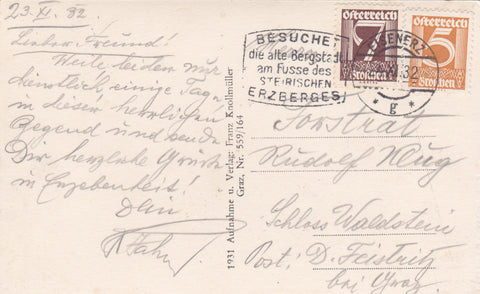 23. XI. 32
Lieber Freund!
Weile leider nur
dienstlich einige Tage
in dieser herrlichen
Gegend und sende
Dir herzliche Grüße
in Ergebenheit!
Dein
BESUCHET
die alte Bergstadt
am Fusse des
STEIRISCHEN
ERZBERGES!
EISENERZ
32
* g *
Österreich
2
Groschen
Österreich
5
Groschen
1931 Aufnahme u. Verlag: Franz Knollmüller
Graz, Nr. 559/164
Herrn
Forstrat
Rudolf Klug
Schloss Waldstein
Post: D. Feistritz
bei Graz